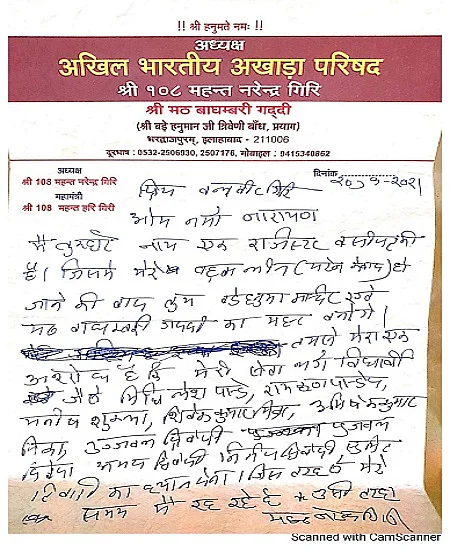 !! श्री हनुमते नमः !!
अध्यक्ष
अखिल भारतीय अखाड़ा परिषद
श्री १०८ महन्त नरेन्द्र गिरि
श्री मठ बाघम्बरी गद्दी
(श्री बड़े हनुमान जी त्रिवेणी बाँध, प्रयाग)
भरद्वाजपुरम्, इलाहाबाद - 211006
दूरभाष : 0532-2506930, 2507176, मोबाइल : 9415340862
अध्यक्ष
श्री 108 महन्त नरेन्द्र गिरि
महामंत्री
श्री 108 महन्त हरि गिरी
दिनांक
प्रिय बलवीर गिरि
ओम नमो नारायण
मैं तुम्हारे नाम एक रजिस्टर वसीयत की
है। जिसमें मेरे (मरने के बाद) हो
जाने की बाद तुम बड़े हनुमान मन्दिर एवं
मठ बाघम्बरी गद्दी का महन्त बनोगे।
तुमसे मेरा एक
मेरी सेवा में विद्यार्थी
जैसे मिथिलेश पाण्डे, रामकृष्ण पाण्डेय,
मनीष शुक्ला, शिवेक कुमार मिश्रा, अभिषेक कुमार
मिश्रा, उज्जवल द्विवेदी
द्विवेदी अभय द्विवेदी निर्भय द्विवेदी सुमित
तिवारी का ध्यान देना। जिस तरह से मेरे
समय में रह रहे है उसी तरह
Scanned with CamScanner